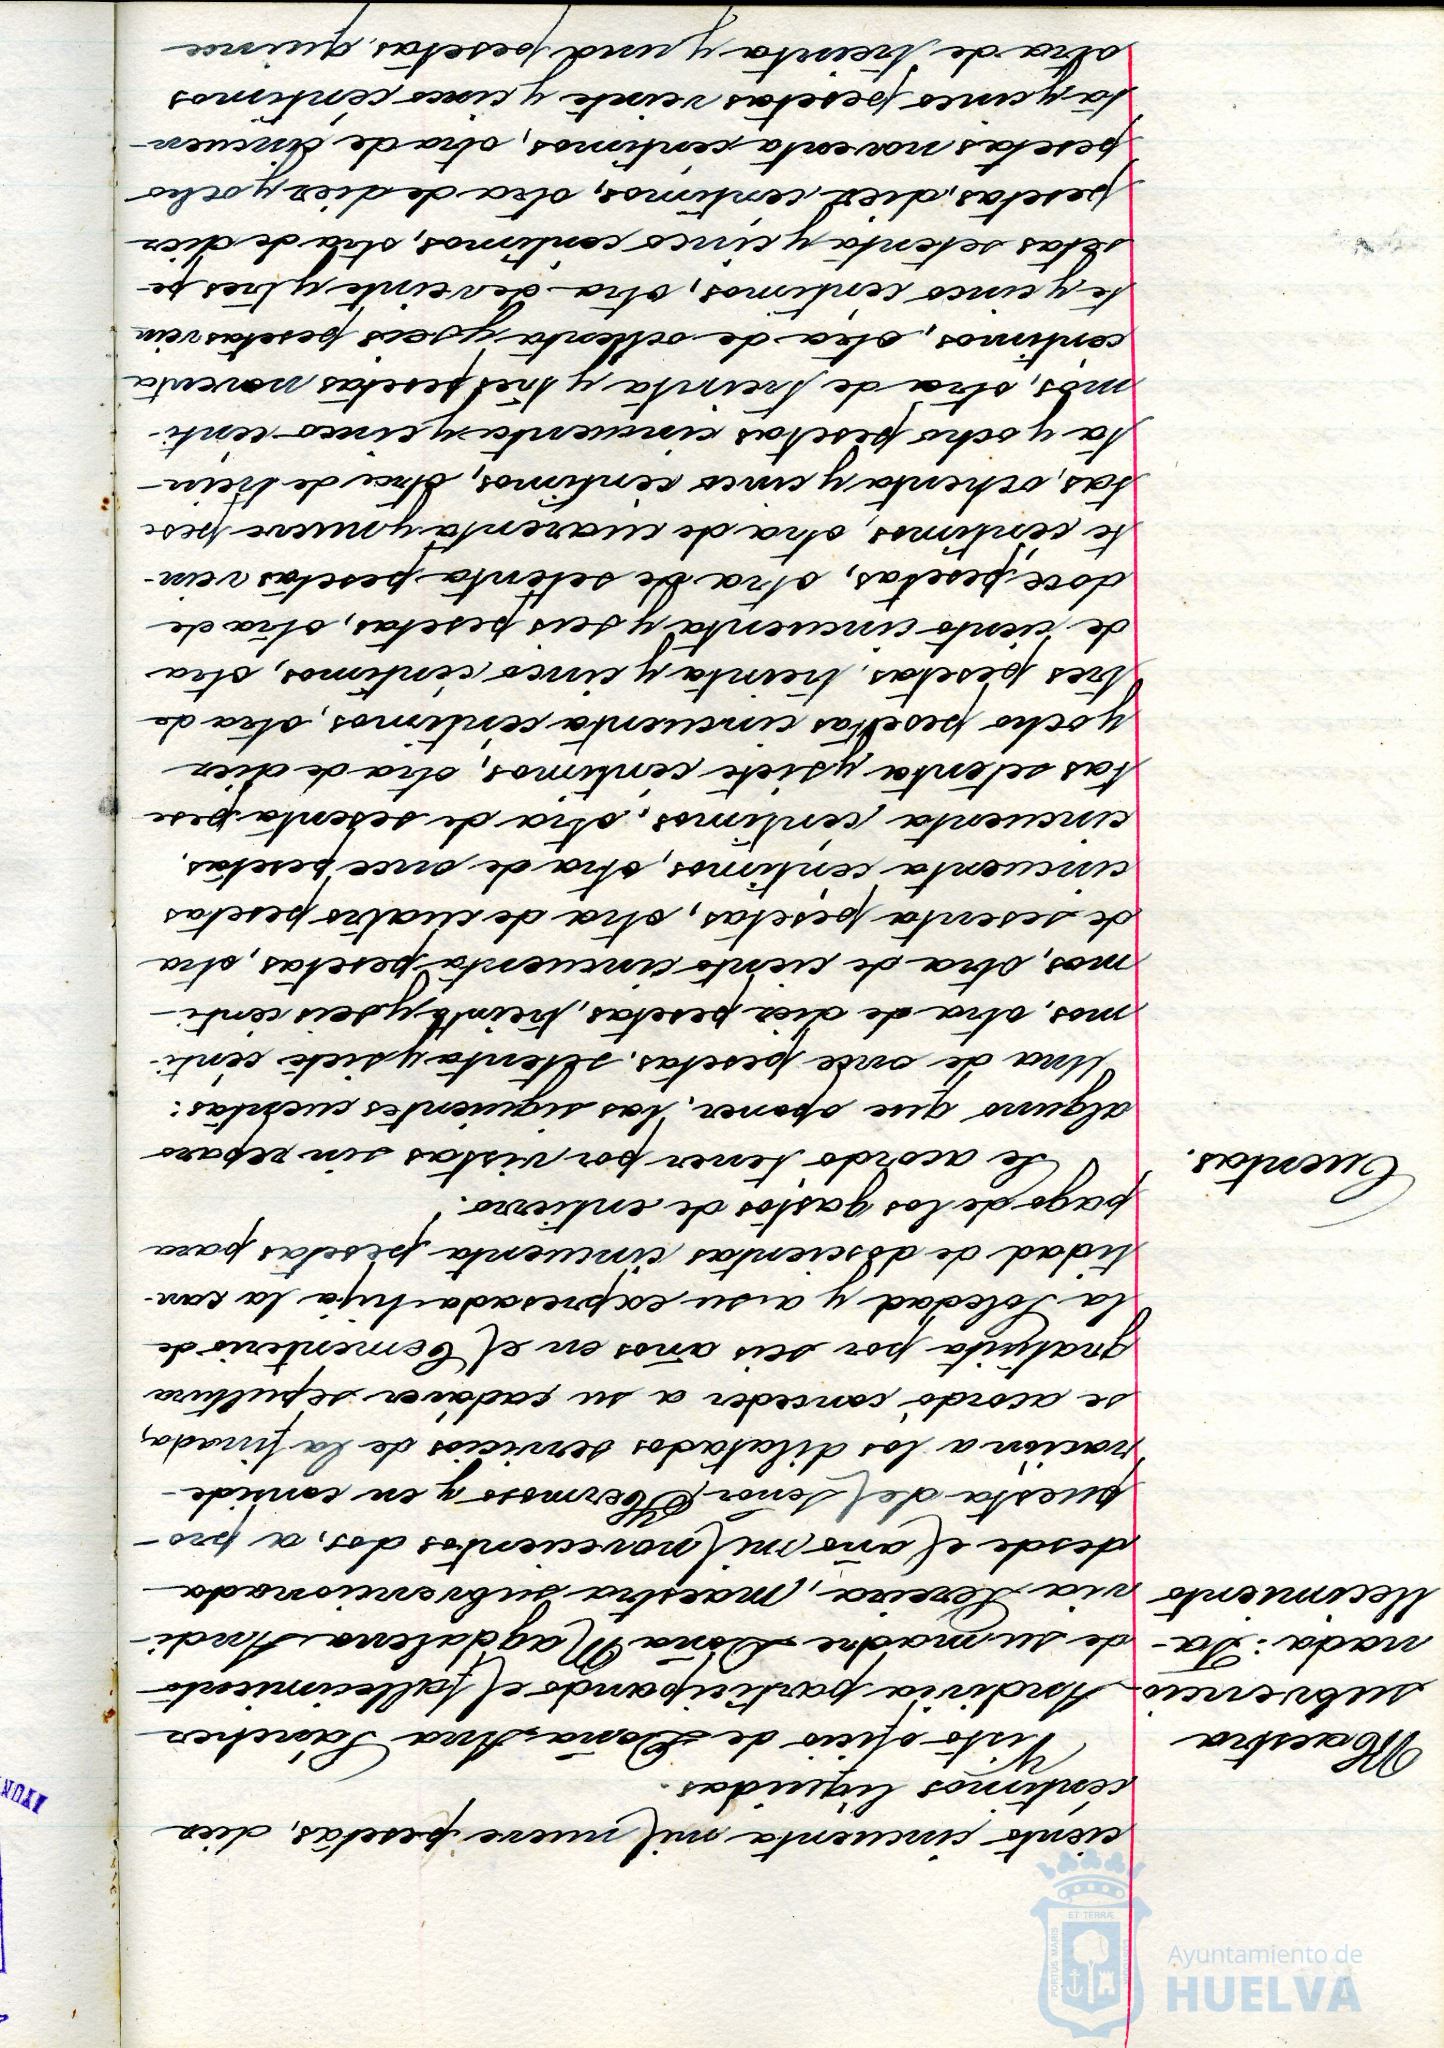 ciento cincuenta mil nueve pesetas, diez
céntimos líquidas.
Maestra
subvencio
nada: Fa-
llecimiento
Visto oficio de Doña Ana Sánchez
Andivia participando el fallecimiento
de su madre Doña Magdalena Andi-
via Pereira, maestra subvencionada
desde el año mil novecientos dos, a pro-
puesta del señor Hermoso y en conside-
ración a los dilatados servicios de la finada,
se acordó conceder a su cadáver sepultura
gratuita por seis años en el Cementerio de
la Soledad y a su expresada hija la can-
tidad de doscientas cincuenta pesetas para
pago de los gastos de entierro.
Cuentas.
Se acordó tener por vistas sin reparo
alguno que oponer, las siguientes cuentas:
Una de once pesetas, setenta y siete cénti-
mos, otra de diez pesetas, treinta y seis cénti-
mos, otra de ciento cincuenta pesetas, otra
de sesenta pesetas, otra de cuatro pesetas
cincuenta céntimos, otra de once pesetas,
cincuenta céntimos, otra de sesenta pese
tas setenta y siete céntimos, otra de diez
y ocho pesetas cincuenta céntimos, otra de
tres pesetas, treinta y cinco céntimos, otra
de ciento cincuenta y seis pesetas, otra de
doce pesetas, otra de setenta pesetas vein-
te céntimos, otra de cuarenta y nueve pese
tas, ochenta y cinco céntimos, otra de trein-
ta y ocho pesetas cincuenta y cinco cénti-
mos, otra de treinta y tres pesetas noventa
céntimos, otra de ochenta y seis pesetas vein
te y cinco céntimos, otra de veinte y tres pe-
setas setenta y cinco céntimos, otra de diez
pesetas, diez céntimos, otra de diez y ocho
pesetas noventa céntimos, otra de cincuen-
ta y cinco pesetas veinte y cinco céntimos
otra de treinta y una pesetas, quince
AYUN
ET TERRÆ
PORTUS MARIS
Ayuntamiento de
HUELVA